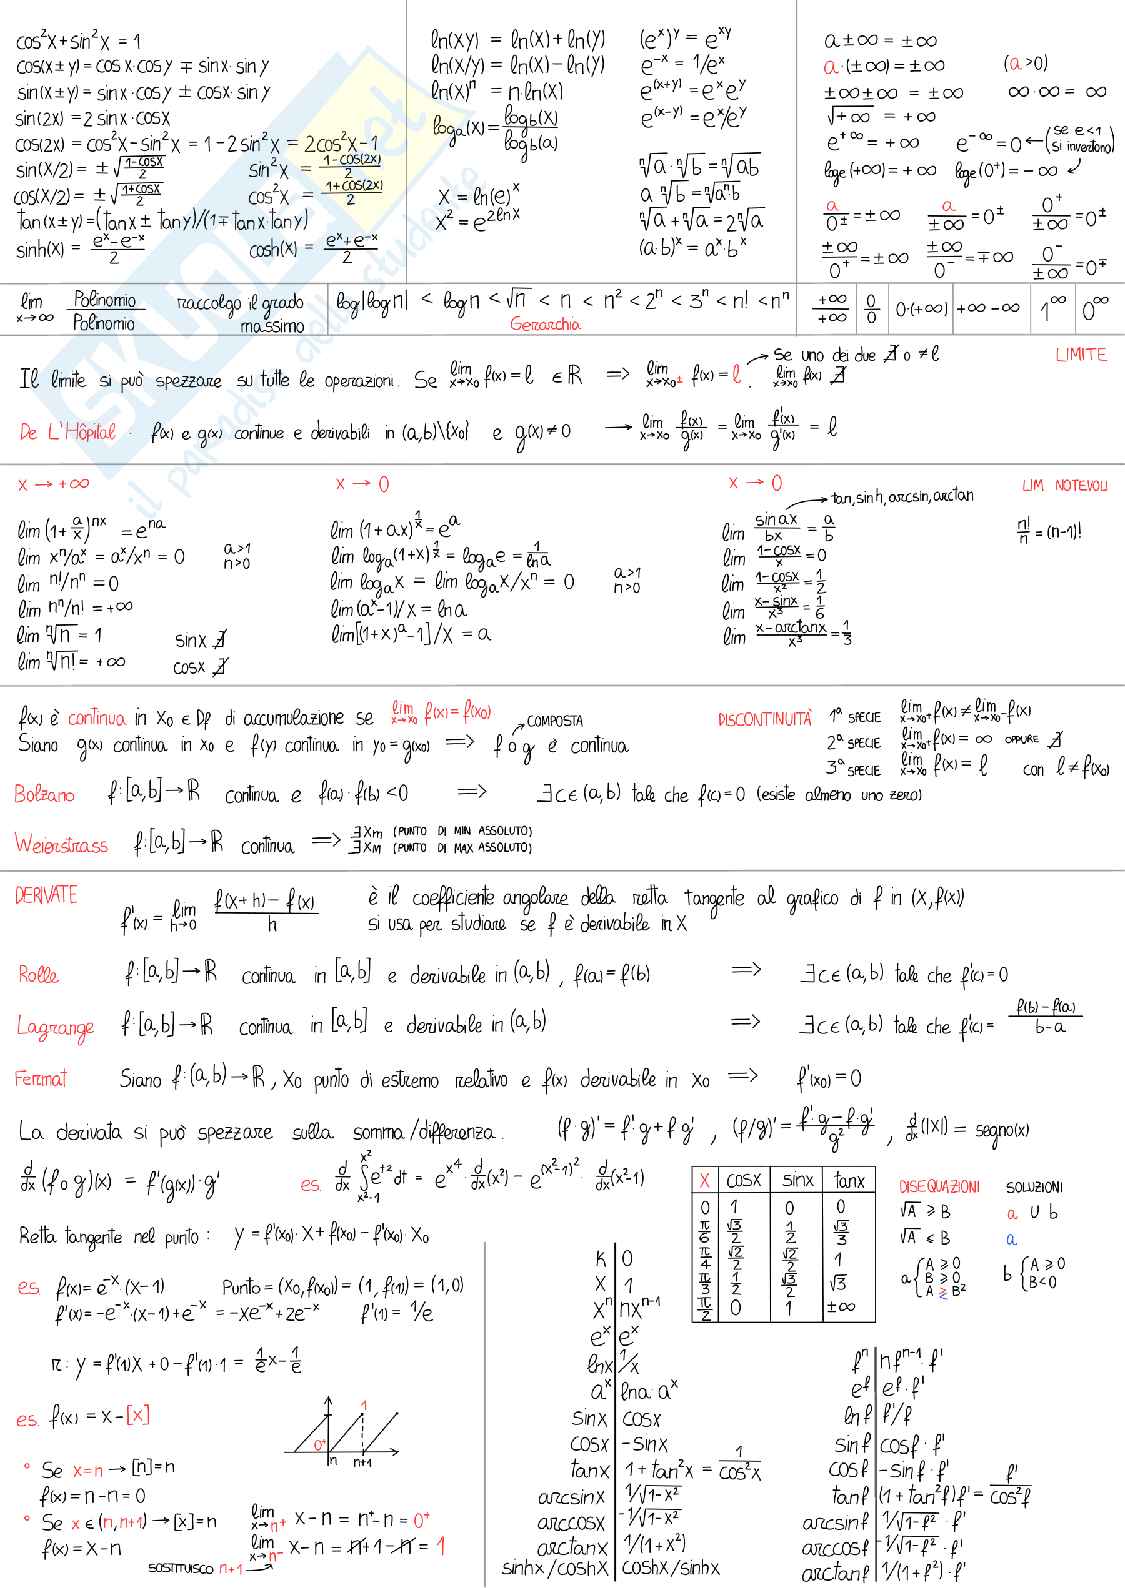 cos²x + sin²x = 1
cos(x ± y) = cos x · cos y ∓ sin x · sin y
sin(x ± y) = sin x · cos y ± cos x · sin y
sin(2x) = 2 sin x · cos x
cos(2x) = cos²x − sin²x = 1 − 2 sin²x = 2cos²x − 1
sin(x/2) = ± √(1−cosx / 2)   sin²x = (1−cos(2x))/2
cos(x/2) = ± √(1+cosx / 2)   cos²x = (1+cos(2x))/2
tan(x±y) = (tanx ± tany)/(1 ∓ tanx·tany)
sinh(x) = (e^x − e^-x)/2   cosh(x) = (e^x + e^-x)/2
ln(xy) = ln(x) + ln(y)
ln(x/y) = ln(x) − ln(y)
ln(x)^n = n ln(x)
log_a(x) = log_b(x)/log_b(a)
x = ln(e)^x
x² = e^(2lnx)
(e^x)^y = e^xy
e^-x = 1/e^x
e^(x+y) = e^x e^y
e^(x−y) = e^x/e^y
ⁿ√a · ⁿ√b = ⁿ√ab
a ⁿ√b = ⁿ√(aⁿb)
ⁿ√a + ⁿ√a = 2 ⁿ√a
(a·b)^x = a^x · b^x
a ± ∞ = ± ∞
a·(±∞) = ±∞   (a>0)
±∞ ±∞ = ±∞   ∞·∞ = ∞
√+∞ = +∞
e^+∞ = +∞   e^-∞ = 0 ← (se e<1 si invertono)
log_e(+∞) = +∞   log_e(0⁺) = −∞
a/0± = ±∞   a/±∞ = 0±   0⁺/±∞ = 0±
±∞/0⁺ = ±∞   ±∞/0⁻ = ∓∞   0⁻/±∞ = 0∓
lim x→∞ Polinomio/Polinomio   raccolgo il grado massimo
log|logn| < logn < √n < n < n² < 2ⁿ < 3ⁿ < n! < nⁿ
Gerarchia
+∞/+∞   0/0   0·(+∞)   +∞−∞   1^∞   0^∞
LIMITE
Il limite si può spezzare su tutte le operazioni. Se lim x→x₀ f(x) = l ∈ ℝ => lim x→x₀± f(x) = l. Se uno dei due ∄ o ≠ l → lim x→x₀ f(x) ∄
De L'Hôpital · f(x) e g(x) continue e derivabili in (a,b)\{x₀} e g(x) ≠ 0 → lim x→x₀ f(x)/g(x) = lim x→x₀ f'(x)/g'(x) = l
x → +∞
lim (1+a/x)^nx = e^na
lim xⁿ/a^x = a^x/xⁿ = 0   a>1 n>0
lim n!/nⁿ = 0
lim nⁿ/n! = +∞
lim ⁿ√n = 1   sinx ∄
lim ⁿ√n! = +∞   cosx ∄
x → 0
lim (1+ax)^(1/x) = e^a
lim log_a(1+x)^(1/x) = log_a e = 1/lna
lim log_a x = lim log_a x/xⁿ = 0   a>1 n>0
lim (a^x−1)/x = lna
lim [(1+x)^a −1]/x = a
x → 0
→ tan, sinh, arcsin, arctan
lim sin ax/bx = a/b
lim (1−cosx)/x = 0
lim (1−cosx)/x² = 1/2
lim (x−sinx)/x³ = 1/6
lim (x−arctanx)/x³ = 1/3
LIM NOTEVOLI
n!/n = (n−1)!
f(x) è continua in x₀ ∈ Df di accumulazione se lim x→x₀ f(x) = f(x₀)
Siano g(x) continua in x₀ e f(y) continua in y₀ = g(x₀) => f o g è continua
COMPOSTA
DISCONTINUITÀ
1ª SPECIE lim x→x₀⁺ f(x) ≠ lim x→x₀⁻ f(x)
2ª SPECIE lim x→x₀± f(x) = ∞ OPPURE ∄
3ª SPECIE lim x→x₀ f(x) = l con l ≠ f(x₀)
Bolzano f:[a,b] → ℝ continua e f(a)·f(b) < 0 => ∃ c ∈ (a,b) tale che f(c) = 0 (esiste almeno uno zero)
Weierstrass f:[a,b] → ℝ continua => ∃ xm (PUNTO DI MIN ASSOLUTO)
∃ xM (PUNTO DI MAX ASSOLUTO)
DERIVATE
f'(x) = lim h→0 (f(x+h) − f(x))/h
è il coefficiente angolare della retta tangente al grafico di f in (x, f(x))
si usa per studiare se f è derivabile in x
Rolle f:[a,b] → ℝ continua in [a,b] e derivabile in (a,b), f(a) = f(b) => ∃ c ∈ (a,b) tale che f'(c) = 0
Lagrange f:[a,b] → ℝ continua in [a,b] e derivabile in (a,b) => ∃ c ∈ (a,b) tale che f'(c) = (f(b)−f(a))/(b−a)
Fermat Siano f:(a,b) → ℝ, x₀ punto di estremo relativo e f(x) derivabile in x₀ => f'(x₀) = 0
La derivata si può spezzare sulla somma/differenza. (f·g)' = f'·g + f·g', (f/g)' = (f'·g − f·g')/g², d/dx (|x|) = segno(x)
d/dx (f o g)(x) = f'(g(x))·g'
es. d/dx ∫ x²−1 x² e^t² dt = e^x⁴ · d/dx(x²) − e^(x²−1)² · d/dx(x²−1)
Retta tangente nel punto: y = f'(x₀)·x + f(x₀) − f'(x₀)·x₀
es. f(x) = e^-x·(x−1)   Punto = (x₀, f(x₀)) = (1, f(1)) = (1,0)
f'(x) = −e^-x·(x−1) + e^-x = −xe^-x + 2e^-x   f'(1) = 1/e
r: y = f'(1)x + 0 − f'(1)·1 = 1/e x − 1/e
es. f(x) = x − [x]
1
0⁺
n   n+1
° Se x = n → [n] = n
f(x) = n − n = 0
° Se x ∈ (n, n+1) → [x] = n
f(x) = x − n
lim x→n+ x − n = n⁺ − n = 0⁺
lim x→n− x − n = n + 1 − n = 1
SOSTITUISCO n+1
x   cosx   sinx   tanx
0   1   0   0
π/6   √3/2   1/2   √3/3
π/4   √2/2   √2/2   1
π/3   1/2   √3/2   √3
π/2   0   1   ±∞
DISEQUAZIONI   SOLUZIONI
√A ≥ B   a ∪ b
√A ≤ B   a
a { A ≥ 0 B ≥ 0 A ≷ B²   b { A ≥ 0 B < 0
K   0
x   1
xⁿ   nxⁿ⁻¹
e^x   e^x
lnx   1/x
a^x   lna·a^x
sinx   cosx
cosx   −sinx
tanx   1 + tan²x = 1/cos²x
arcsinx   1/√(1−x²)
arccosx   −1/√(1−x²)
arctanx   1/(1+x²)
sinhx/coshx   coshx/sinhx
fⁿ   nfⁿ⁻¹·f'
e^f   e^f·f'
lnf   f'/f
sinf   cosf·f'
cosf   −sinf·f'
tanf   (1+tan²f)f' = f'/cos²f
arcsinf   1/√(1−f²)·f'
arccosf   −1/√(1−f²)·f'
arctanf   1/(1+f²)·f'
SKUOLA.net
il paradiso dello studente